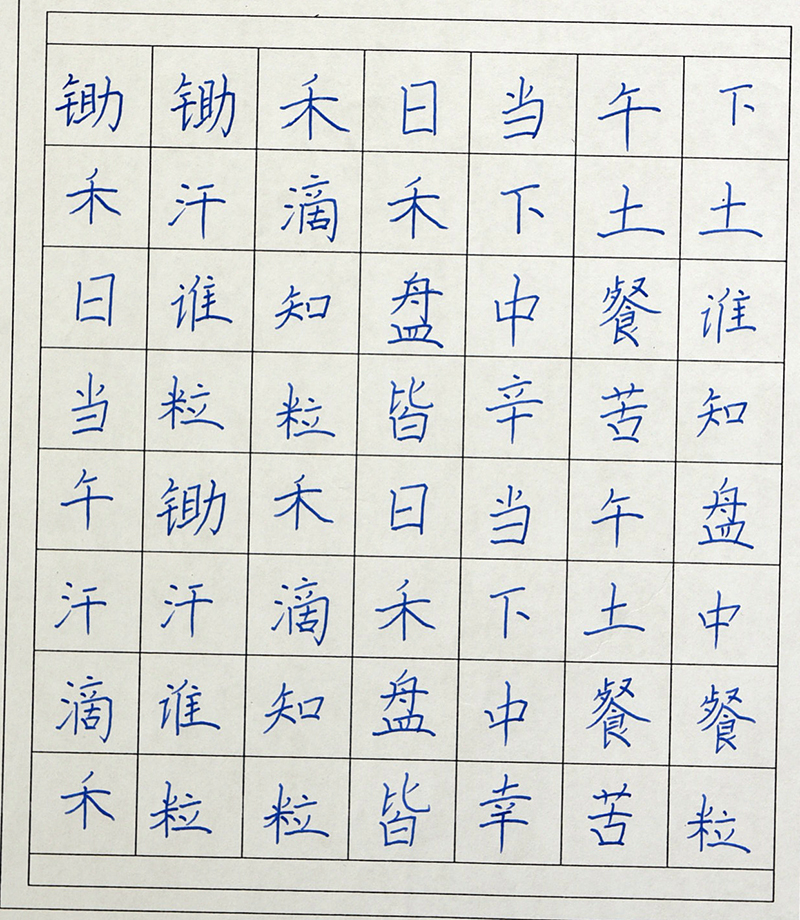 锄锄禾日当午下
禾汗滴禾下土土
日谁知盘中餐谁
当粒粒皆辛苦知
午锄禾日当午盘
汗汗滴禾下土中
滴谁知盘中餐餐
禾粒粒皆幸苦粒